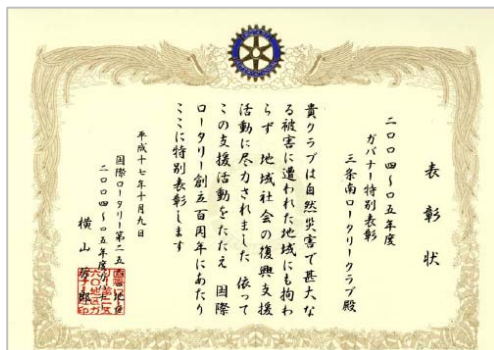 表彰状
二〇〇四〜〇五年度
ガバナー特別表彰
三条南ロータリークラブ殿
貴クラブは自然災害で甚大な
る被害に遭われた地域にも拘わ
らず 地域社会の復興支援
活動に尽力されました 依って
この支援活動をたたえ 国際
ロータリー創立百周年にあたり
ここに特別表彰します
平成十七年十月九日
国際ロータリー第二五
二〇〇四〜〇五年度ガ
横山